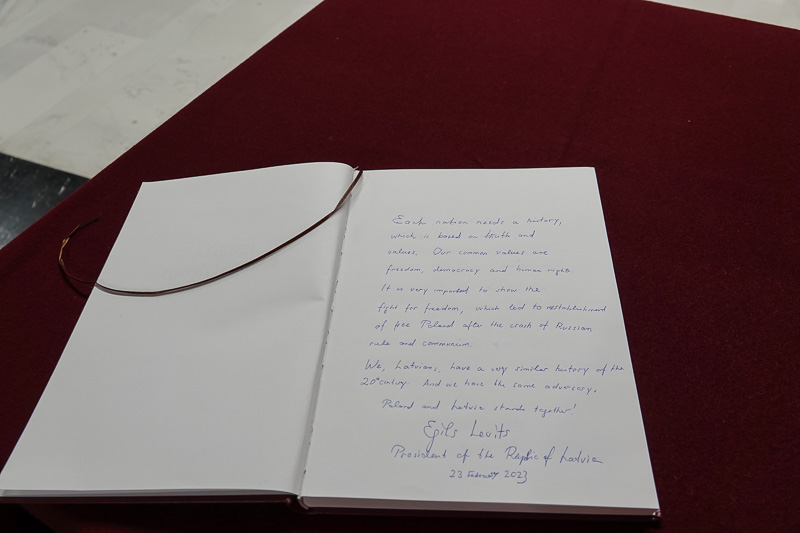 Each nation needs a history,
which is based on truth and
values. Our common values are
freedom, democracy and human rights
It is very important to show the
fight for freedom, which led to restablishment
of free Poland after the crash of Russian
rule and communism.
We, Latvians, have a very similar history of the
20th century. And we have the same adversary.
Poland and Latvia stands together!
Egils Levits
President of the Republic of Latvia
23 February 2023